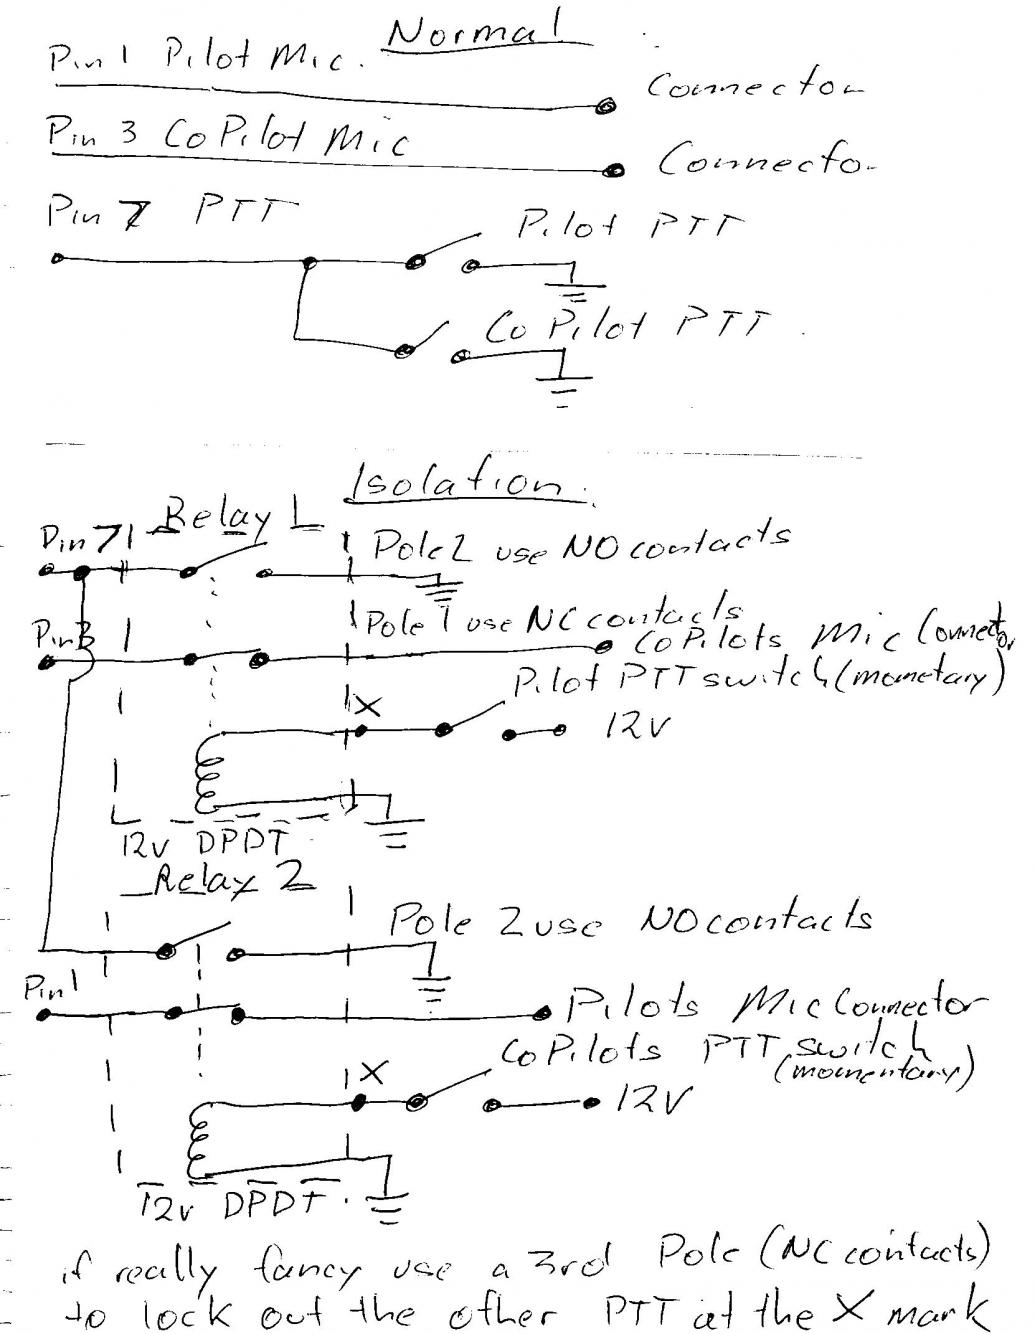 Normal
Pin 1 Pilot Mic.
Connector
Pin 3 CoPilot Mic
Connector
Pin 7 PTT
Pilot PTT
Co Pilot PTT
Isolation
Relay 1
Pin 7
Pole 2 use NO contacts
Pole 1 use NC contacts
Pin 3
CoPilots Mic Connector
Pilot PTT switch (mometary)
X
12v
12v DPDT
Relay 2
Pole 2 use NO contacts
Pin 1
Pilots Mic Connector
CoPilots PTT switch
(momentary)
X
12V
12v DPDT.
if really fancy use a 3rd Pole (NC contacts)
to lock out the other PTT at the X mark